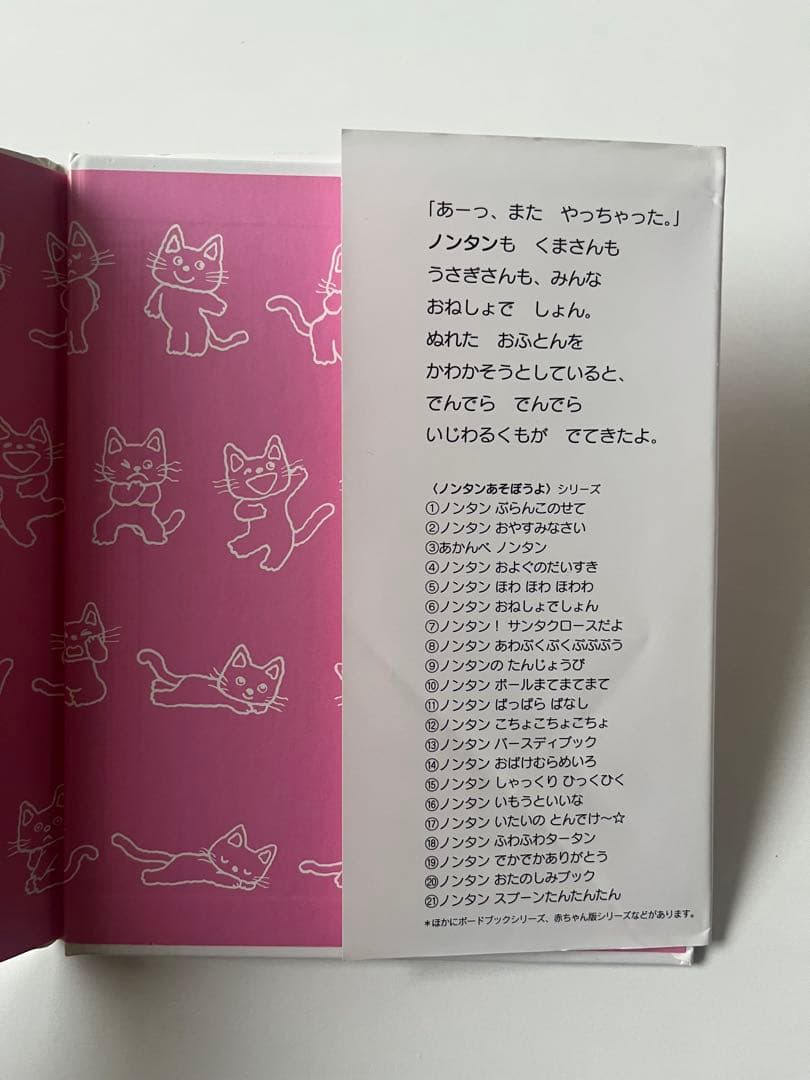 「あーっ、また　やっちゃった。」
ノンタンも　くまさんも
うさぎさんも、みんな
おねしょで　しょん。
ぬれた　おふとんを
かわかそうとしていると、
でんでら　でんでら
いじわるくもが　でてきたよ。
〈ノンタンあそぼうよ〉シリーズ
①ノンタン ぶらんこのせて
②ノンタン おやすみなさい
③あかんべ ノンタン
④ノンタン およぐのだいすき
⑤ノンタン ほわ ほわ ほわわ
⑥ノンタン おねしょでしょん
⑦ノンタン！ サンタクロースだよ
⑧ノンタン あわぷくぷくぷぷぷう
⑨ノンタンの たんじょうび
⑩ノンタン ボールまてまてまて
⑪ノンタン ぱっぱら ぱなし
⑫ノンタン こちょこちょこちょ
⑬ノンタン バースディブック
⑭ノンタン おばけむらめいろ
⑮ノンタン しゃっくり ひっくひく
⑯ノンタン いもうといいな
⑰ノンタン いたいの とんでけ〜☆
⑱ノンタン ふわふわタータン
⑲ノンタン でかでかありがとう
⑳ノンタン おたのしみブック
㉑ノンタン スプーンたんたんたん
＊ほかにボードブックシリーズ、赤ちゃん版シリーズなどがあります。